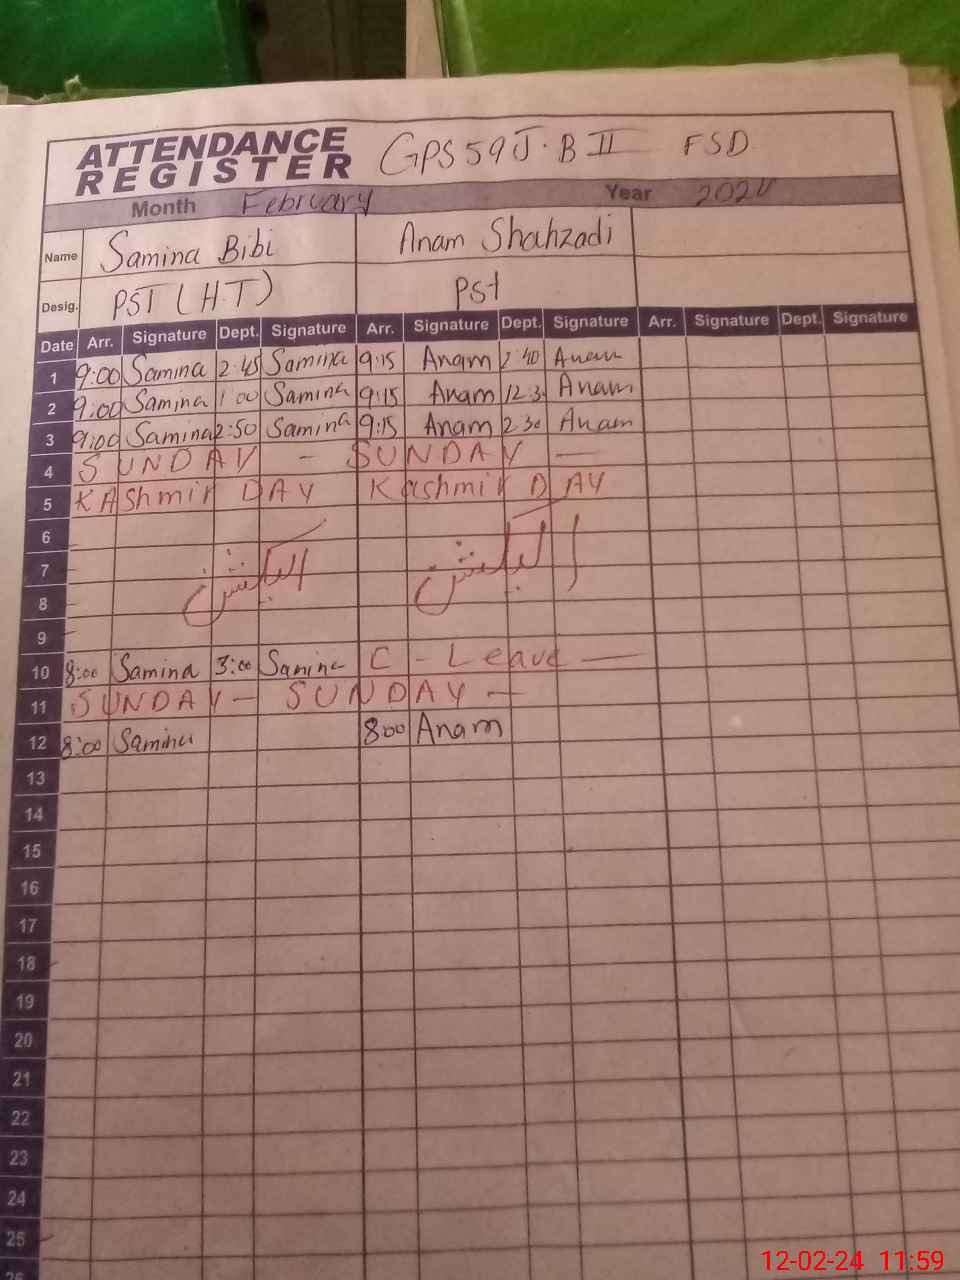 ATTENDANCE REGISTER GPS 59 J.B II FSD.
Month February Year 2024
Name Samina Bibi Anam Shahzadi
Desig. PST (H.T) Pst
Date Arr. Signature Dept. Signature Arr. Signature Dept. Signature Arr. Signature Dept. Signature
1 9:00 Samina 2:45 Samina 9:15 Anam 2:40 Anam
2 9:00 Samina 1:00 Samina 9:15 Anam 12:3 Anam
3 9:00 Samina 2:50 Samina 9:15 Anam 2:30 Anam
4 SUNDAY - SUNDAY —
5 KAshmir DAY Kashmir DAY
6
7 الیکشن الیکشن
8
9
10 8:00 Samina 3:00 Samina C - Leave —
11 SUNDAY - SUNDAY -
12 8:00 Samina 800 Anam
13
14
15
16
17
18
19
20
21
22
23
24
25
26
12-02-24 11:59